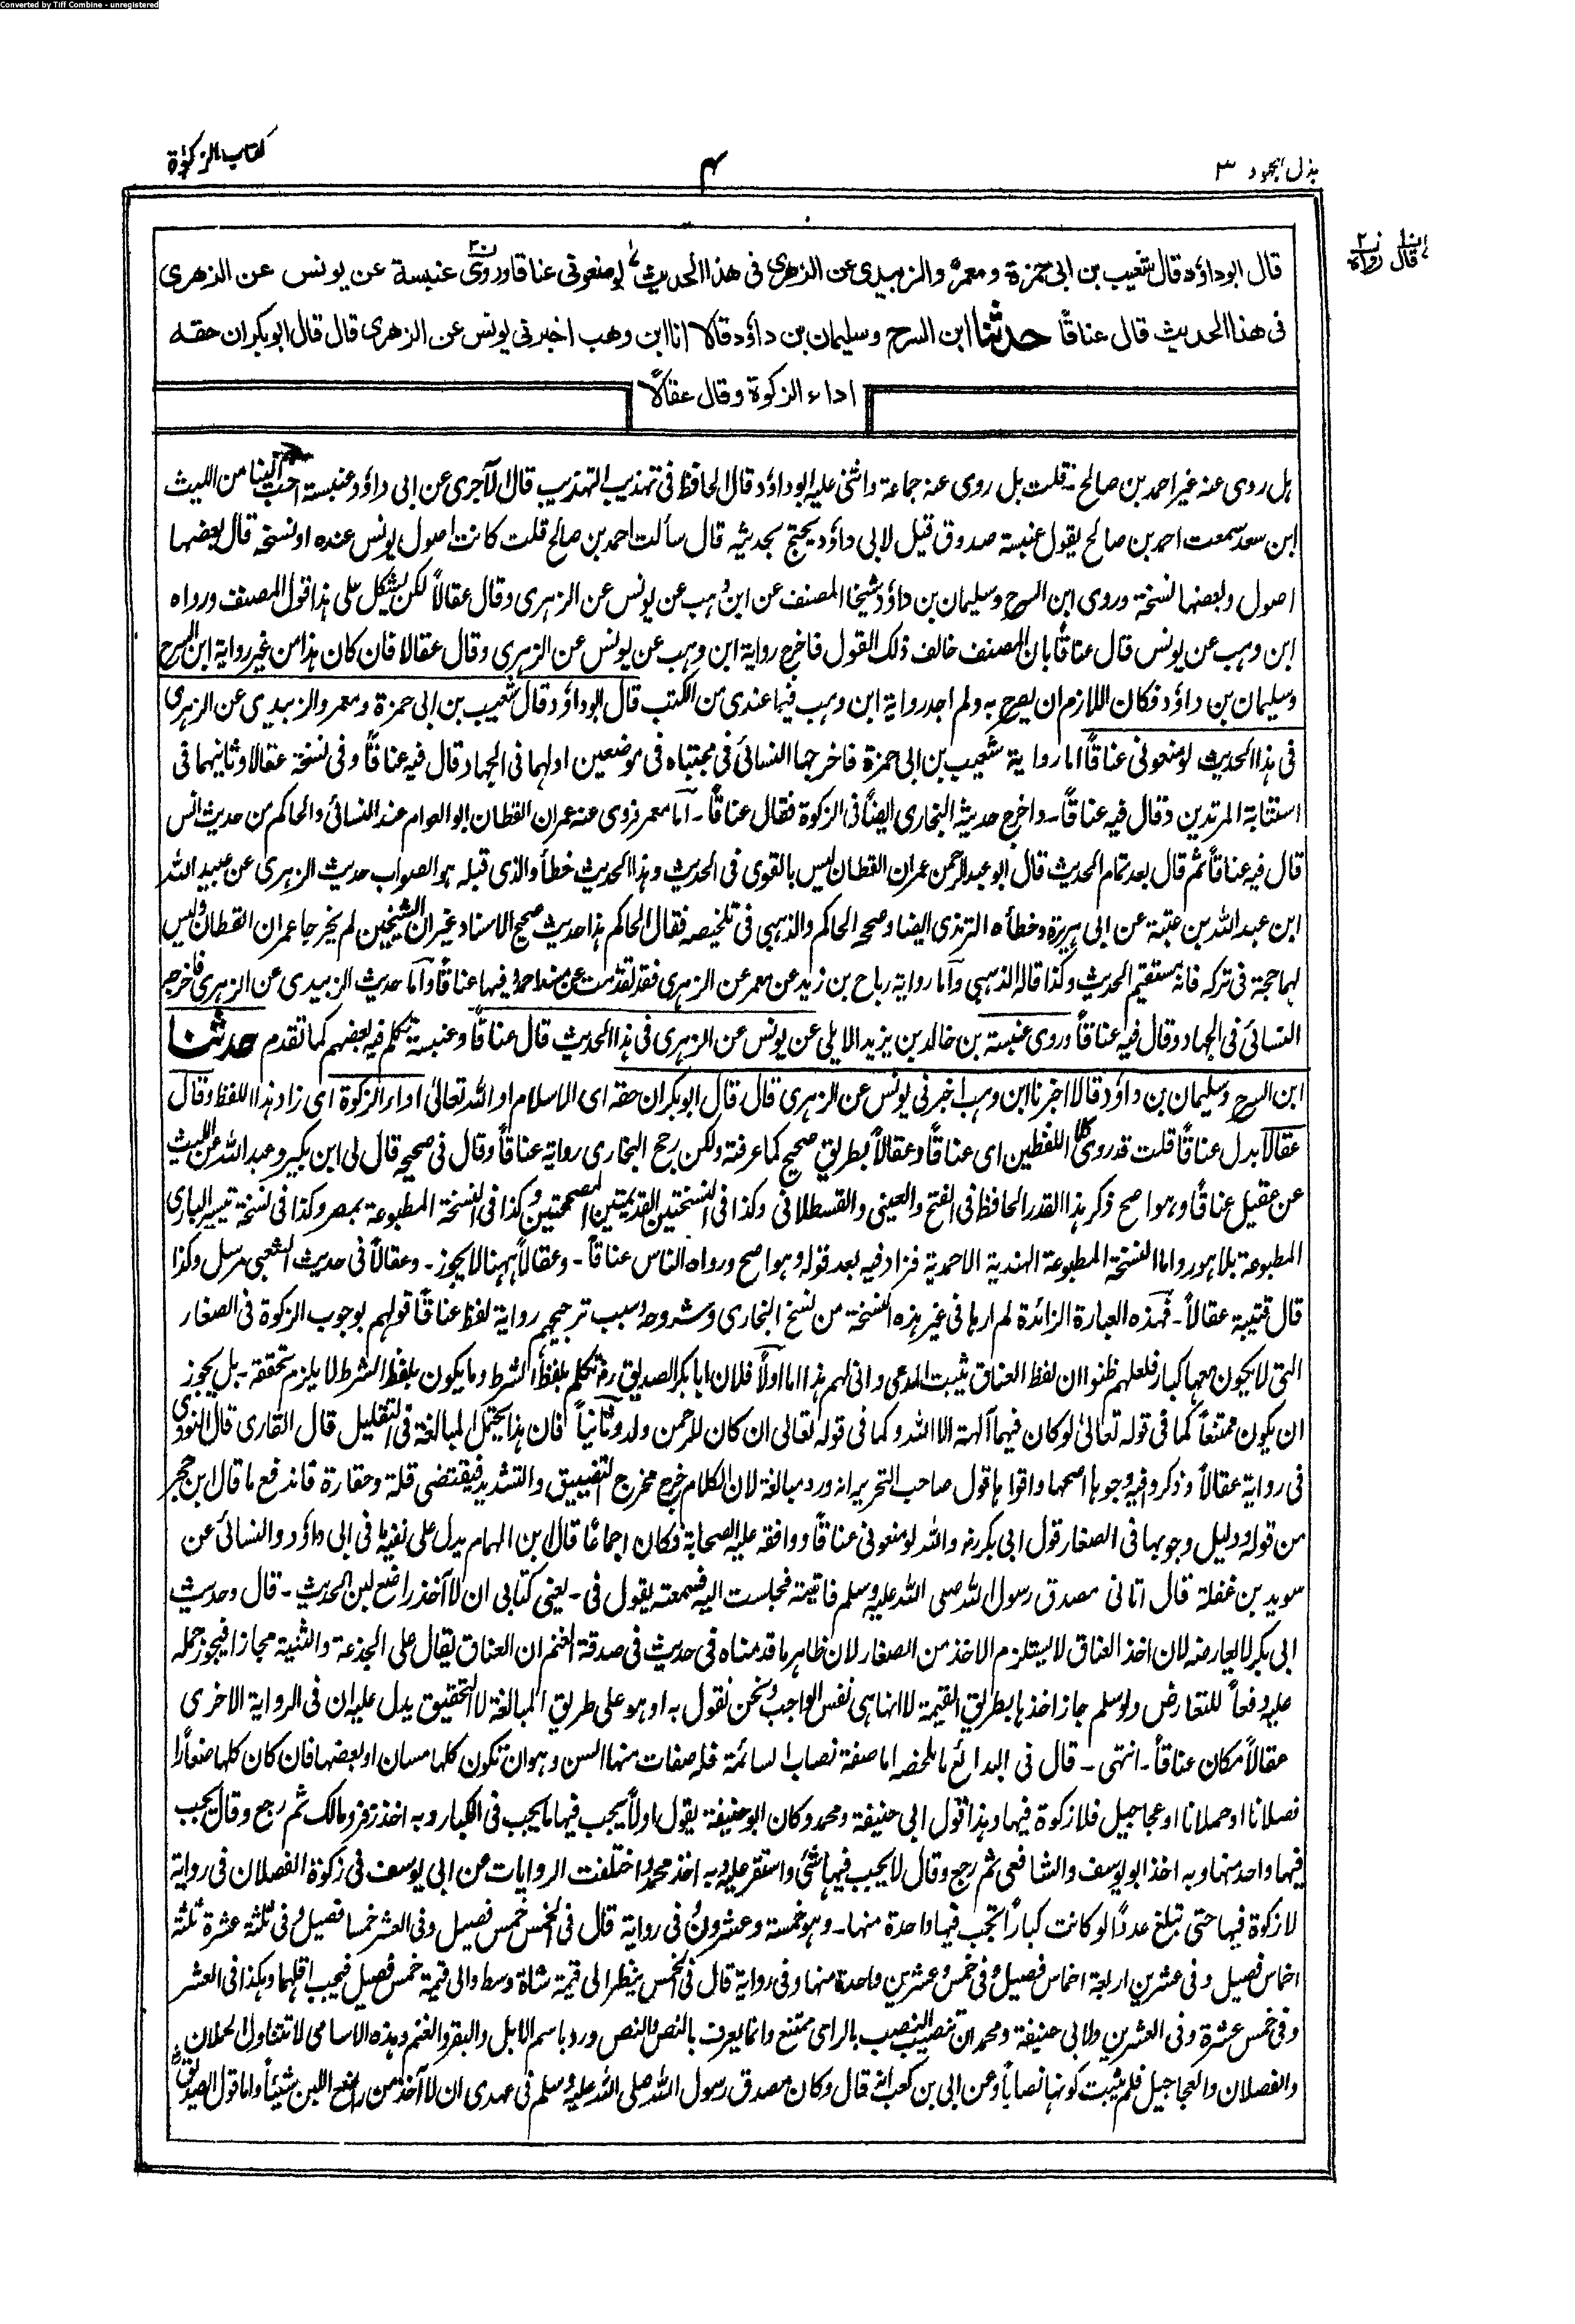 Converted by Tiff Combine - unregistered
بذل المجهود ٣
٤
كتاب الزكوٰة
قال ابوداؤد قال شعيب بن ابى حمزة و معمر والزبيدى عن الزهرى فى هذا الحديث لو منعونى عناقا وروى عنبسة عن يونس عن الزهرى
فى هذا الحديث قال عناقًا حدثنا ابن السرح وسليمان بن داؤد قالا انا ابن وهب اخبرنى يونس عن الزهرى قال قال ابوبكر ان حقه
اداء الزكوة وقال عقالًا
بل روى عنه غير احمد بن صالح قلت بل روى عنه جماعة واثنى عليه ابوداؤد قال الحافظ فى تهذيب التهذيب قال الآجرى عن ابى داؤد عنبسة احب الينا من الليث
ابن سعد سمعت احمد بن صالح يقول عنبسة صدوق قيل لابى داؤد يحتج بحديثه قال سألت احمد بن صالح قلت كانت اصول يونس عنده او نسخة قال بعضها
اصول وبعضها نسخة وروى ابن السرح وسليمان بن داؤد شيخا المصنف عن ابن وهب عن يونس عن الزهرى وقال عقالاً لكن يشكل على هذا قول المصنف ورواه
ابن وهب عن يونس قال عناقا بان المصنف خالف ذلك القول فاخرج رواية ابن وهب عن يونس عن الزهرى وقال عقالا فان كان هذا من غير رواية ابن السرح
وسليمان بن داؤد فكان اللازم ان يصرح به ولم اجد رواية ابن وهب فيما عندى من الكتب قال ابوداؤد قال شعيب بن ابى حمزة ومعمر والزبيدى عن الزهرى
فى هذا الحديث لو منعونى عناقاً اما رواية شعيب بن ابى حمزة فاخرجها النسائى فى مجتباه فى موضعين اولهما فى الجهاد قال فيه عناقاً وفى نسخة عقالا وثانيهما فى
استتابة المرتدين وقال فيه عناقاً ۔ واخرج حديثه البخارى ايضاً فى الزكوة فقال عناقاً ۔ اما معمر فروى عنه عمران القطان ابو العوام عند النسائى والحاكم من حديث انس
قال فيه عناقاً ثم قال بعد تمام الحديث قال ابو عبد الرحمن عمران القطان ليس بالقوى فى الحديث وهذا الحديث خطأ والذى قبله هو الصواب حديث الزهرى عن عبيد الله
ابن عبد الله بن عتبة عن ابى هريرة وخطأه الترمذى ايضا وصححه الحاكم والذهبى فى تلخيصه فقال الحاكم هذا حديث صحيح الاسناد غير ان الشيخين لم يخرجا عمران القطان وليس
لهما حجة فى تركه فانه مستقيم الحديث وكذا قاله الذهبى واما رواية رباح بن زيد عن معمر عن الزهرى فقد تقدمت عن مسند احمد وفيها عناقاً واما حديث الزبيدى عن الزهرى فاخرجه
النسائى فى الجهاد وقال فيه عناقاً وروى عنبسة بن خالد بن يزيد الايلى عن يونس عن الزهرى فى هذا الحديث قال عناقاً وعنبسة تكلم فيه بعضهم كما تقدم حدثنا
ابن السرح وسليمان بن داؤد قالا اخبرنا ابن وهب اخبرنى يونس عن الزهرى قال قال ابوبكر ان حقه اى الاسلام او الله تعالى اداء الزكوة اى زاد هذا اللفظ وقال
عقالاً بدل عناقاً قلت قد روى كلا اللفظين اى عناقاً وعقالاً بطريق صحيح كما عرفته ولكن رجح البخارى رواية عناقاً وقال فى صحيحه قال لى ابن بكير وعبد الله عن الليث
عن عقيل عناقاً وهو اصح ذكر هذا القدر الحافظ فى الفتح والعينى والقسطلانى وكذا فى النسختين القديمتين المصححتين وكذا فى النسخة المطبوعة بمصر وكذا فى نسخة تيسير البارى
المطبوعة بلاهور واما النسخة المطبوعة الهندية الاحمدية فزاد فيه بعد قوله وهو اصح ورواه الناس عناقاً ۔ وعقالاً ههنا لا يجوز ۔ وعقالاً فى حديث الشعبى مرسل وكذا
قال قتيبة عقالاً ۔ فهذه العبارة الزائدة لم ارها فى غير هذه النسخة من نسخ البخارى وشروحه وسبب ترجيحهم رواية لفظ عناقاً قولهم بوجوب الزكوة فى الصغار
التى لا يكون معها كبار فلعلهم ظنوا ان لفظ العناق يثبت المدعى وانى لهم هذا اما اولاً فلان ابا بكر الصديق رض تكلم بلفظ الشرط وما يكون بلفظ الشرط لا يلزم تحققه ۔ بل يجوز
ان يكون ممتنعاً كما فى قوله تعالى لو كان فيهما آلهة الا الله وكما فى قوله تعالى ان كان للرحمن ولد وثانياً فان هذا يحتمل المبالغة فى التقليل قال القارى قال النووى
فى رواية عقالاً وذكروا فيه وجوها اصحها واقواها قول صاحب التحرير انه ورد مبالغة لان الكلام خرج مخرج التضييق والتشديد فيقتضى قلة وحقارة فاندفع ما قال ابن حجر
من قوله ودليل وجوبها فى الصغار قول ابى بكر رض والله لو منعونى عناقاً ووافقه عليه الصحابة فكان اجماعاً قال ابن الهمام يدل على نفيه ما فى ابى داؤد والنسائى عن
سويد بن غفلة قال اتانى مصدق رسول الله صلى الله عليه وسلم فاتيته فجلست اليه فسمعته يقول فى ۔ يعنى كتابى ان لا آخذ راضع لبن الحديث ۔ قال وحديث
ابى بكر لا يعارضه لان اخذ العناق لا يستلزم الاخذ من الصغار لان ظاهر ما قدمناه فى حديث فى صدقة الغنم ان العناق يقال على الجذعة والثنية مجازا فيجوز حمله
عليه دفعاً للتعارض ولو سلم جاز اخذها بطريق القيمة لا انها هى نفس الواجب ونحن نقول به او هو على طريق المبالغة لا التحقيق يدل عليه ان فى الرواية الاخرى
عقالاً مكان عناقاً ۔ انتهى ۔ قال فى البدائع ما ملخصه اما صفة نصاب السائمة فله صفات منها السن وهو ان تكون كلها مسان او بعضها فان كان كلها صغاراً
فصلانا او حملانا او عجاجيل فلا زكوة فيها وهذا قول ابى حنيفة ومحمد وكان ابو حنيفة يقول اولاً يجب فيها ما يجب فى الكبار وبه اخذ زفر ومالك ثم رجع وقال يجب
فيها واحد منها وبه اخذ ابو يوسف والشافعى ثم رجع وقال لا يجب فيها شئ واستقر عليه وبه اخذ محمد واختلفت الروايات عن ابى يوسف فى زكوة الفصلان فى رواية
لا زكوة فيها حتى تبلغ عدداً لو كانت كباراً تجب فيها واحدة منها ۔ وهو خمسة وعشرون وفى رواية قال فى الخمس خمس فصيل وفى العشر خمسا فصيل وفى ثلثة عشرة ثلثة
اخماس فصيل وفى عشرين اربعة اخماس فصيل وفى خمس وعشرين واحدة منها وفى رواية قال فى الخمس ينظر الى قيمة شاة وسط والى قيمة خمس فصيل فيجب اقلهما وهكذا فى العشر
وفى خمس عشرة وفى العشرين ولابى حنيفة ومحمد ان تنصيب النصب بالراى ممتنع وانما يعرف بالنص والنص ورد باسم الابل والبقر والغنم وهذه الاسامى لا تتناول الحملان
والفصلان والعجاجيل فلم يثبت كونها نصاباً وعن ابى بن كعب انه قال وكان مصدق رسول الله صلى الله عليه وسلم فى عهدى ان لا آخذ من راضع اللبن شيئاً واما قول الصديق